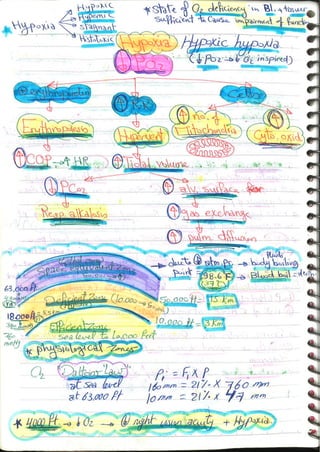 Hypoxic
Hypemic
Stagnant
Histotoxic
* Hypoxia
* State of O2 deficiency in Bl. & tissue
sufficient to cause impairment of funct
Hypoxia
↓ PO2
Hypoxic hypoxia
(↓ PO2 → ↓ O2 inspired)
↑ erythropoietin
Cells
Erythropoiesis
Hypervent
↑ no. of
Mitochondria
↑ Cyto. oxid
↑ COP, ↑ HR
↑ Tidal volume
↓ PCO2
↑ alv. surface
Resp. alkalosis
↑ gas exchange
↑ pulm diffusion
Space equivalent Zone
63.000 ft
due to ↓ atm. Pr. → body boiling
point
98.6 F
→ Blood boil
Deficient Zone (10.000 →
50.000 ft = 15 km
18.000 ft
10.000 ft = 3 km
Efficient Zone
sea level to 10,000 feet
* physiological Zones
O2 Dalton's law
Pi = Fi X P
at sea level 160 mm = 21% X 760 mm
at 63.000 ft 10 mm = 21% X 47 mm
* 4000 ft → ↓ O2 → ↓ night vision acuity + Hypoxia